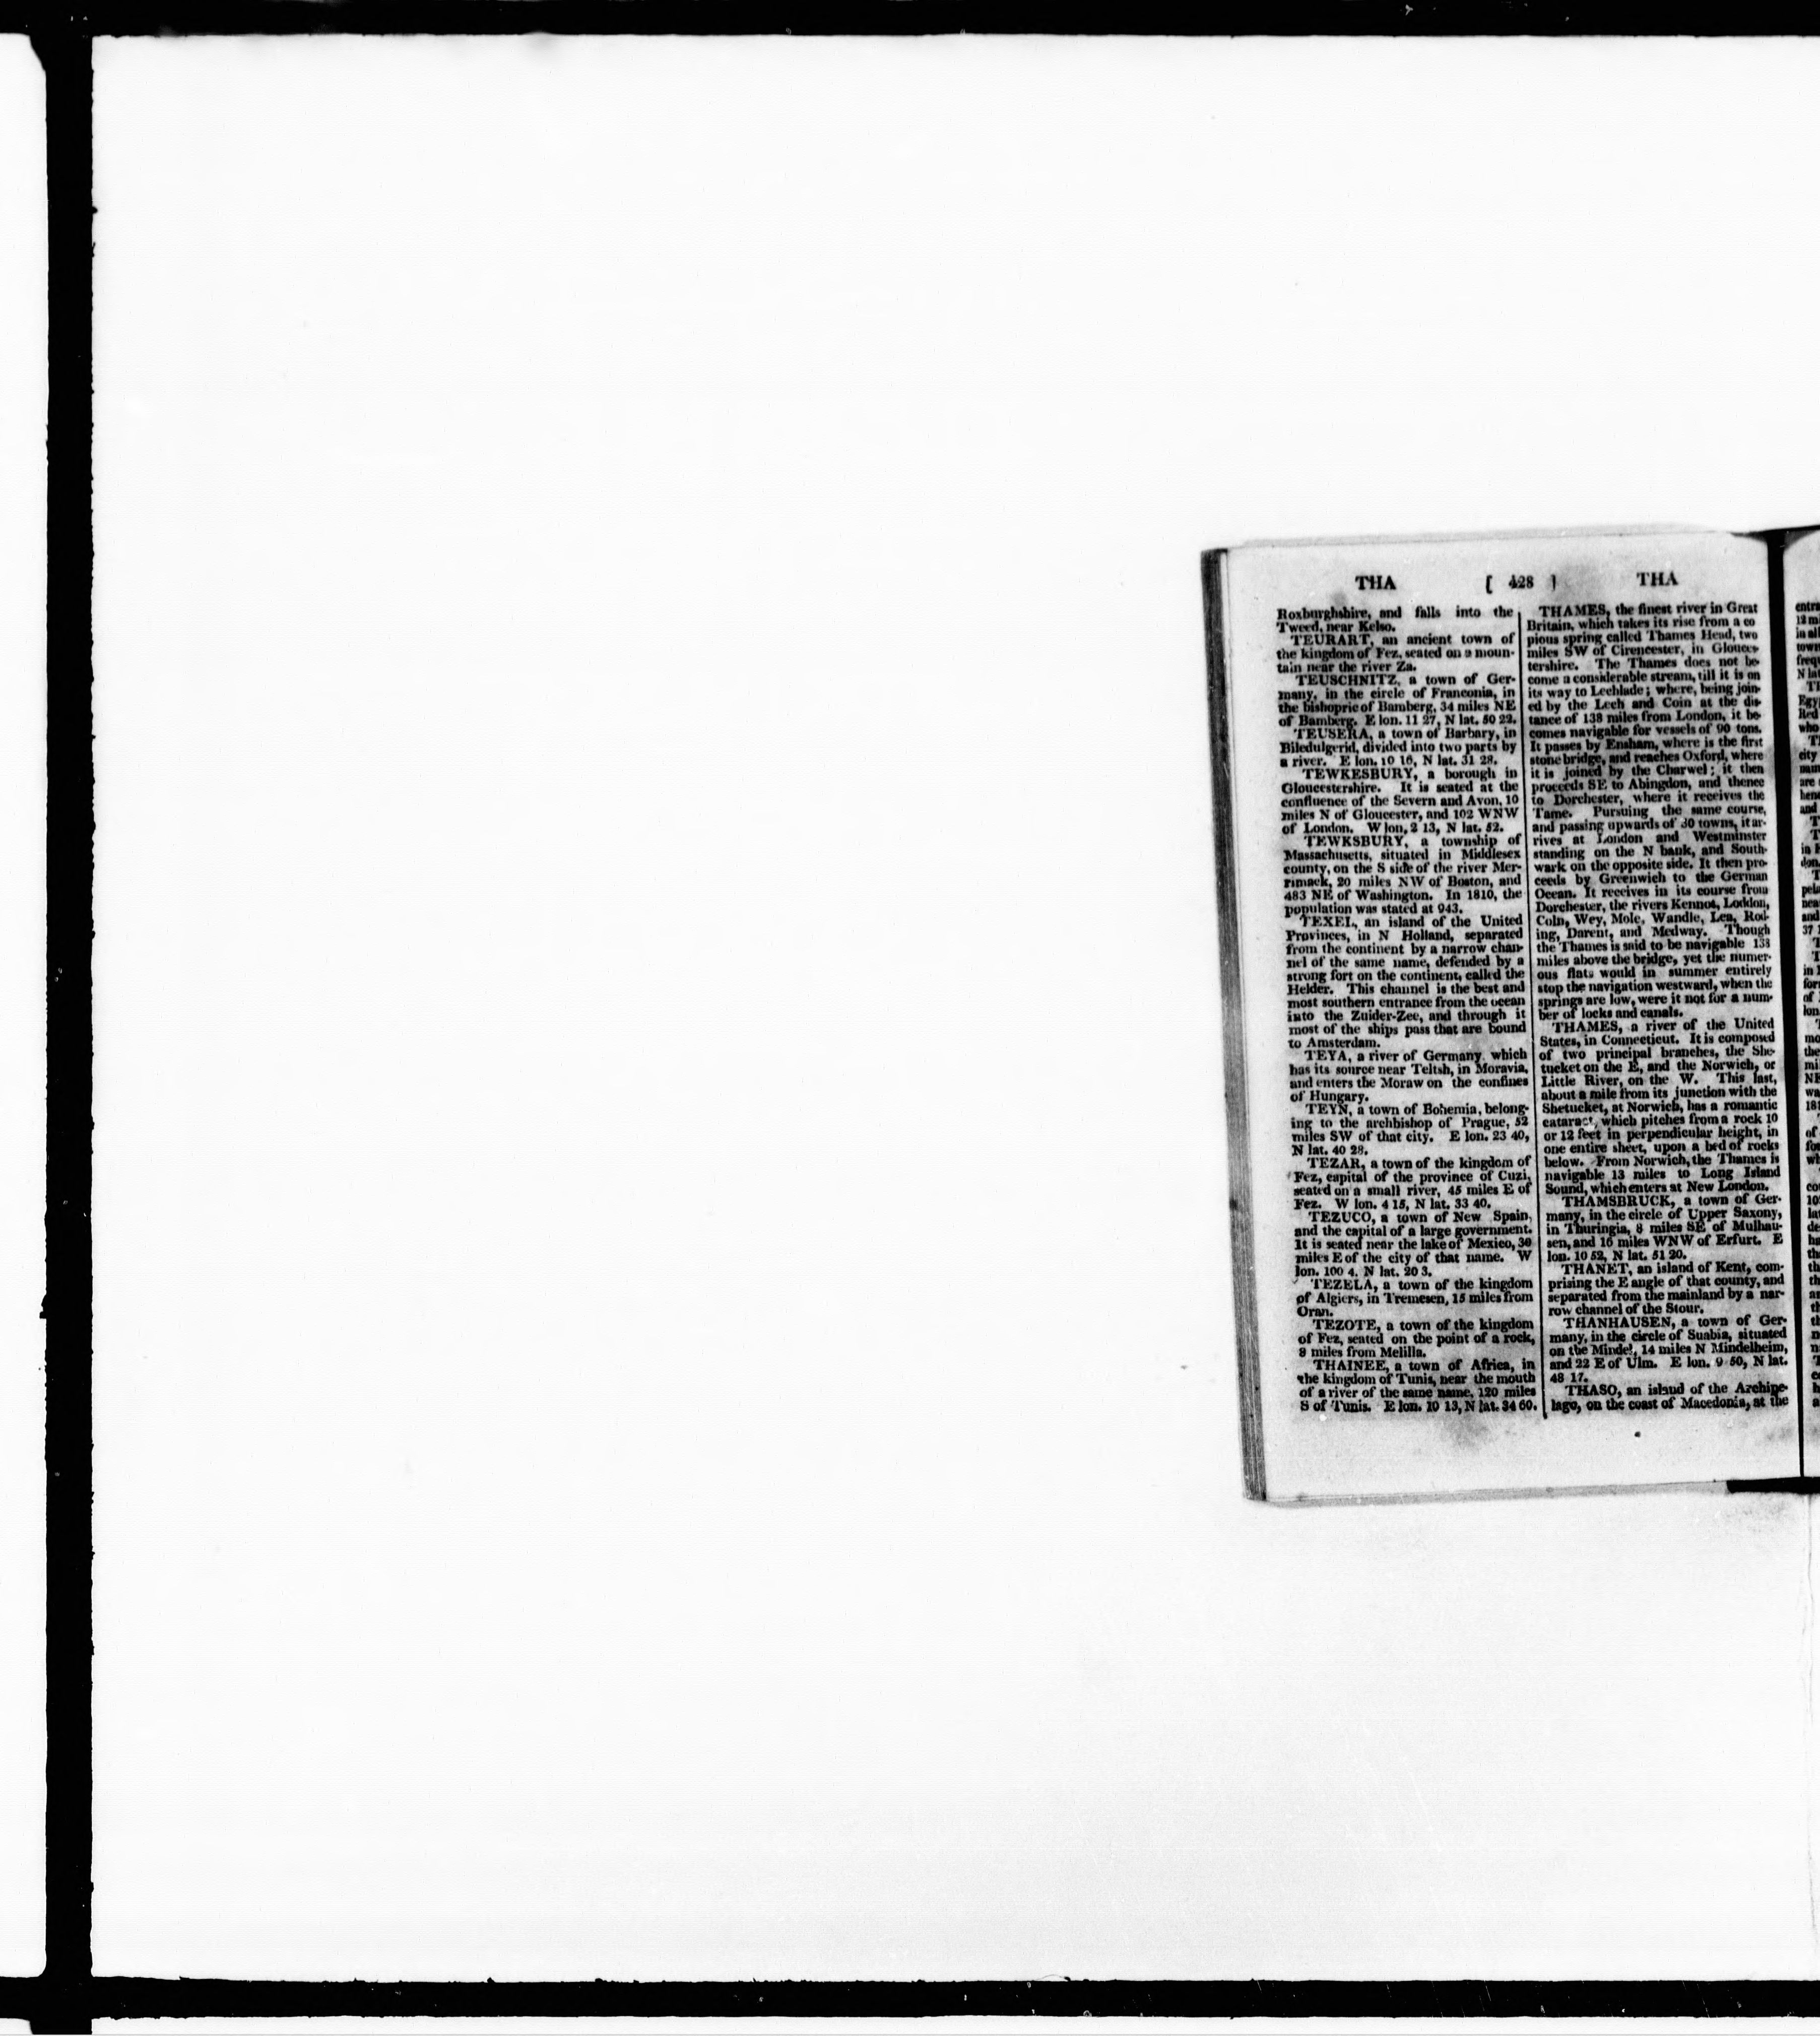 THA [ 428 ] THA
Roxburghshire, and falls into the
Tweed, near Kelso.
TEURART, an ancient town of
the kingdom of Fez, seated on a moun-
tain near the river Za.
TEUSCHNITZ, a town of Ger-
many, in the circle of Franconia, in
the bishopric of Bamberg, 34 miles NE
of Bamberg. E lon. 11 27, N lat. 50 22.
TEUSERA, a town of Barbary, in
Biledulgerid, divided into two parts by
a river. E lon. 10 16, N lat. 31 28.
TEWKESBURY, a borough in
Gloucestershire. It is seated at the
confluence of the Severn and Avon, 10
miles N of Gloucester, and 102 WNW
of London. W lon, 2 13, N lat. 52.
TEWKSBURY, a township of
Massachusetts, situated in Middlesex
county, on the S side of the river Mer-
rimack, 20 miles NW of Boston, and
483 NE of Washington. In 1810, the
population was stated at 943.
TEXEL, an island of the United
Provinces, in N Holland, separated
from the continent by a narrow chan-
nel of the same name, defended by a
strong fort on the continent, called the
Helder. This channel is the best and
most southern entrance from the ocean
into the Zuider-Zee, and through it
most of the ships pass that are bound
to Amsterdam.
TEYA, a river of Germany which
has its source near Teltsh, in Moravia,
and enters the Moraw on the confines
of Hungary.
TEYN, a town of Bohemia, belong-
ing to the archbishop of Prague, 52
miles SW of that city. E lon. 23 40,
N lat. 40 28.
TEZAR, a town of the kingdom of
Fez, capital of the province of Cuzi,
seated on a small river, 45 miles E of
Fez. W lon. 4 15, N lat. 33 40.
TEZUCO, a town of New Spain,
and the capital of a large government.
It is seated near the lake of Mexico, 30
miles E of the city of that name. W
lon. 100 4. N lat. 20 3.
TEZELA, a town of the kingdom
of Algiers, in Tremesen, 15 miles from
Oran.
TEZOTE, a town of the kingdom
of Fez, seated on the point of a rock,
8 miles from Melilla.
THAINEE, a town of Africa, in
the kingdom of Tunis, near the mouth
of a river of the same name, 120 miles
S of Tunis. E lon. 10 13, N lat. 34 60.
THAMES, the finest river in Great
Britain, which takes its rise from a co
pious spring called Thames Head, two
miles SW of Cirencester, in Glouces-
tershire. The Thames does not be-
come a considerable stream, till it is on
its way to Lechlade; where, being join-
ed by the Lech and Coln at the dis-
tance of 138 miles from London, it be-
comes navigable for vessels of 90 tons.
It passes by Ensham, where is the first
stone bridge, and reaches Oxford, where
it is joined by the Charwel; it then
proceeds SE to Abingdon, and thence
to Dorchester, where it receives the
Tame. Pursuing the same course,
and passing upwards of 30 towns, it ar-
rives at London and Westminster
standing on the N bank, and South-
wark on the opposite side. It then pro-
ceeds by Greenwich to the German
Ocean. It receives in its course from
Dorchester, the rivers Kennot, Loddon,
Coln, Wey, Mole, Wandle, Lea, Rod-
ing, Darent, and Medway. Though
the Thames is said to be navigable 138
miles above the bridge, yet the numer-
ous flats would in summer entirely
stop the navigation westward, when the
springs are low, were it not for a num-
ber of locks and canals.
THAMES, a river of the United
States, in Connecticut. It is composed
of two principal branches, the She-
tucket on the E, and the Norwich, or
Little River, on the W. This last,
about a mile from its junction with the
Shetucket, at Norwich, has a romantic
cataract, which pitches from a rock 10
or 12 feet in perpendicular height, in
one entire sheet, upon a bed of rocks
below. From Norwich, the Thames is
navigable 13 miles to Long Island
Sound, which enters at New London.
THAMSBRUCK, a town of Ger-
many, in the circle of Upper Saxony,
in Thuringia, 8 miles SE of Mulhau-
sen, and 16 miles WNW of Erfurt. E
lon. 10 52, N lat. 51 20.
THANET, an island of Kent, com-
prising the E angle of that county, and
separated from the mainland by a nar-
row channel of the Stour.
THANHAUSEN, a town of Ger-
many, in the circle of Suabia, situated
on the Mindel, 14 miles N Mindelheim,
and 22 E of Ulm. E lon. 9 50, N lat.
48 17.
THASO, an island of the Archipe-
lago, on the coast of Macedonia, at the